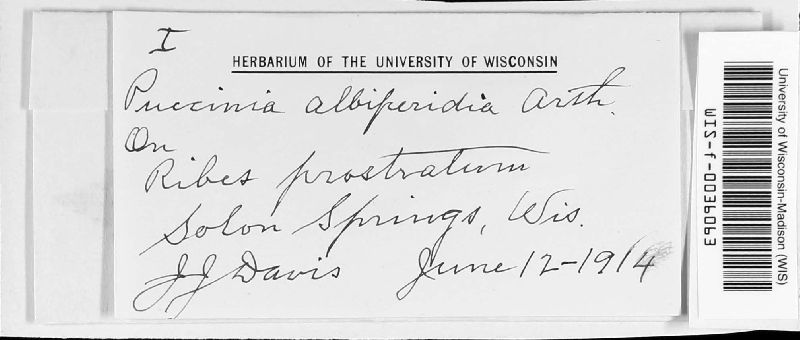 I
HERBARIUM OF THE UNIVERSITY OF WISCONSIN
Puccinia albiperidia Arth.
On
Ribes prostratum
Solon Springs, Wis.
JJ Davis June 12-1914
University of Wisconsin-Madison (WIS)
WIS-f-0039093